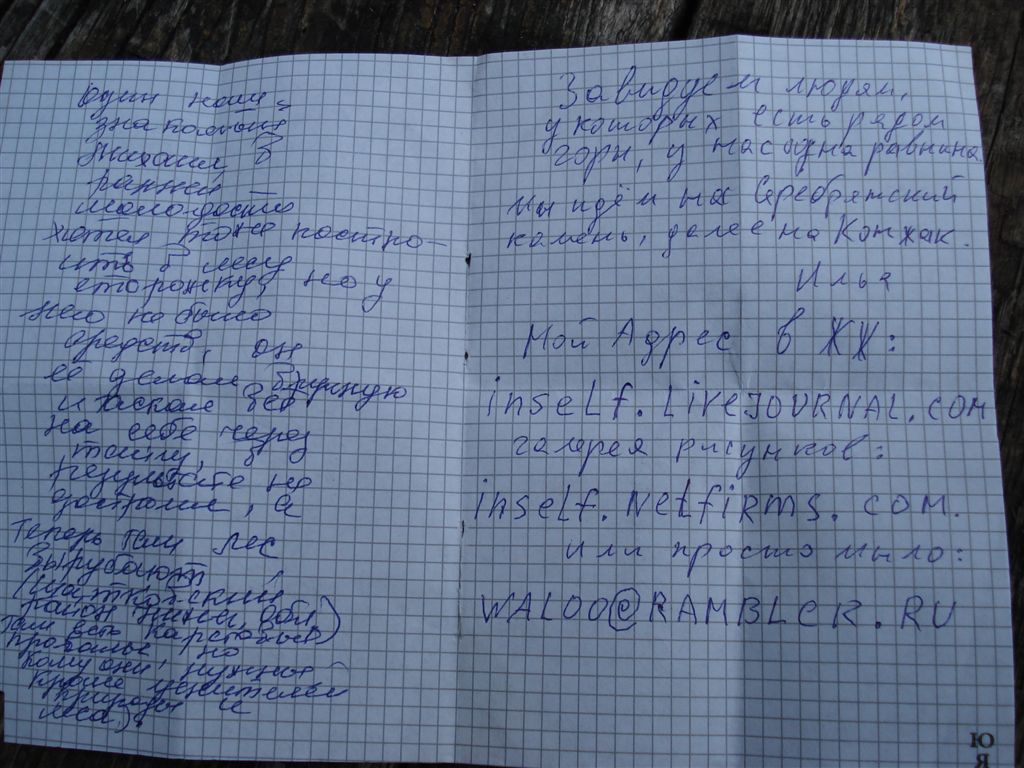 один наш
знакомый
Михаил в
ранней
молодости
хотел тоже постро-
ить в лесу
сторожку, но у
него не было
средств, он
её делал вручную
и таскал всё
на себе через
тайгу, в
результате не
достроил, а
теперь там лес
вырубают,
(Шатковский
район Нижег. обл)
там есть карстовые
провалы, но
кому они нужны
кроме ценителей
природы и
леса)
Завидуем людям,
у которых есть рядом
горы, у нас одна равнина.
Мы идём на Серебрянский
камень, далее на Конжак.
Илья
Мой Адрес в ЖЖ:
inseLf.LiveJOURNAL.com
галерея рисунков:
inseLf.NetfiRms.com.
или просто мыло:
WALOO@RAMBLER.RU
Ю
Я